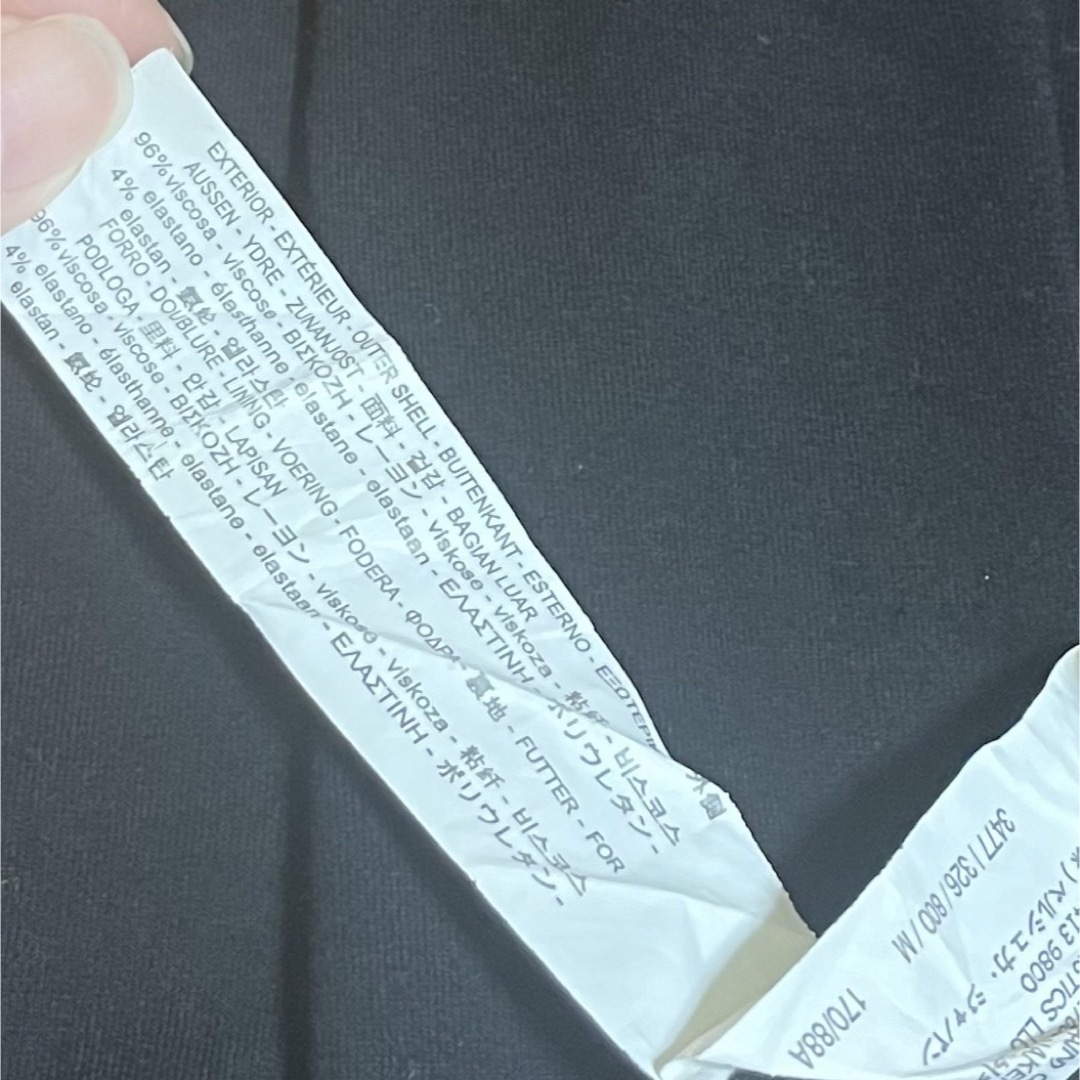 EXTERIOR - EXTÉRIEUR - OUTER SHELL - BUITENKANT - ESTERNO - ΕΞΩΤΕΡΙ
AUSSEN - YDRE - ZUNANJOST - 面料 - 겉감 - BAGIAN LUAR
96% viscosa - viscose - ΒΙΣΚΟΖΗ - レーヨン - viskose - viskoza - 粘纤 - 비스코스
4% elastano - élasthanne - elastane - elastaan - ΕΛΑΣΤΙΝΗ - ポリウレタン -
elastan - 氨纶 - 엘라스탄
FORRO - DOUBLURE - LINING - VOERING - FODERA - ΦΟΔΡΑ - 裏地 - FUTTER - FOR
PODLOGA - 里料 - 안감 - LAPISAN
96% viscosa - viscose - ΒΙΣΚΟΖΗ - レーヨン - viskose - viskoza - 粘纤 - 비스코스
4% elastano - élasthanne - elastane - elastaan - ΕΛΑΣΤΙΝΗ - ポリウレタン -
elastan - 氨纶 - 엘라스탄
3477 / 326 / 800 / M
170/88A
ベルシュカ・ジャパン
13 9800
STICS LLC